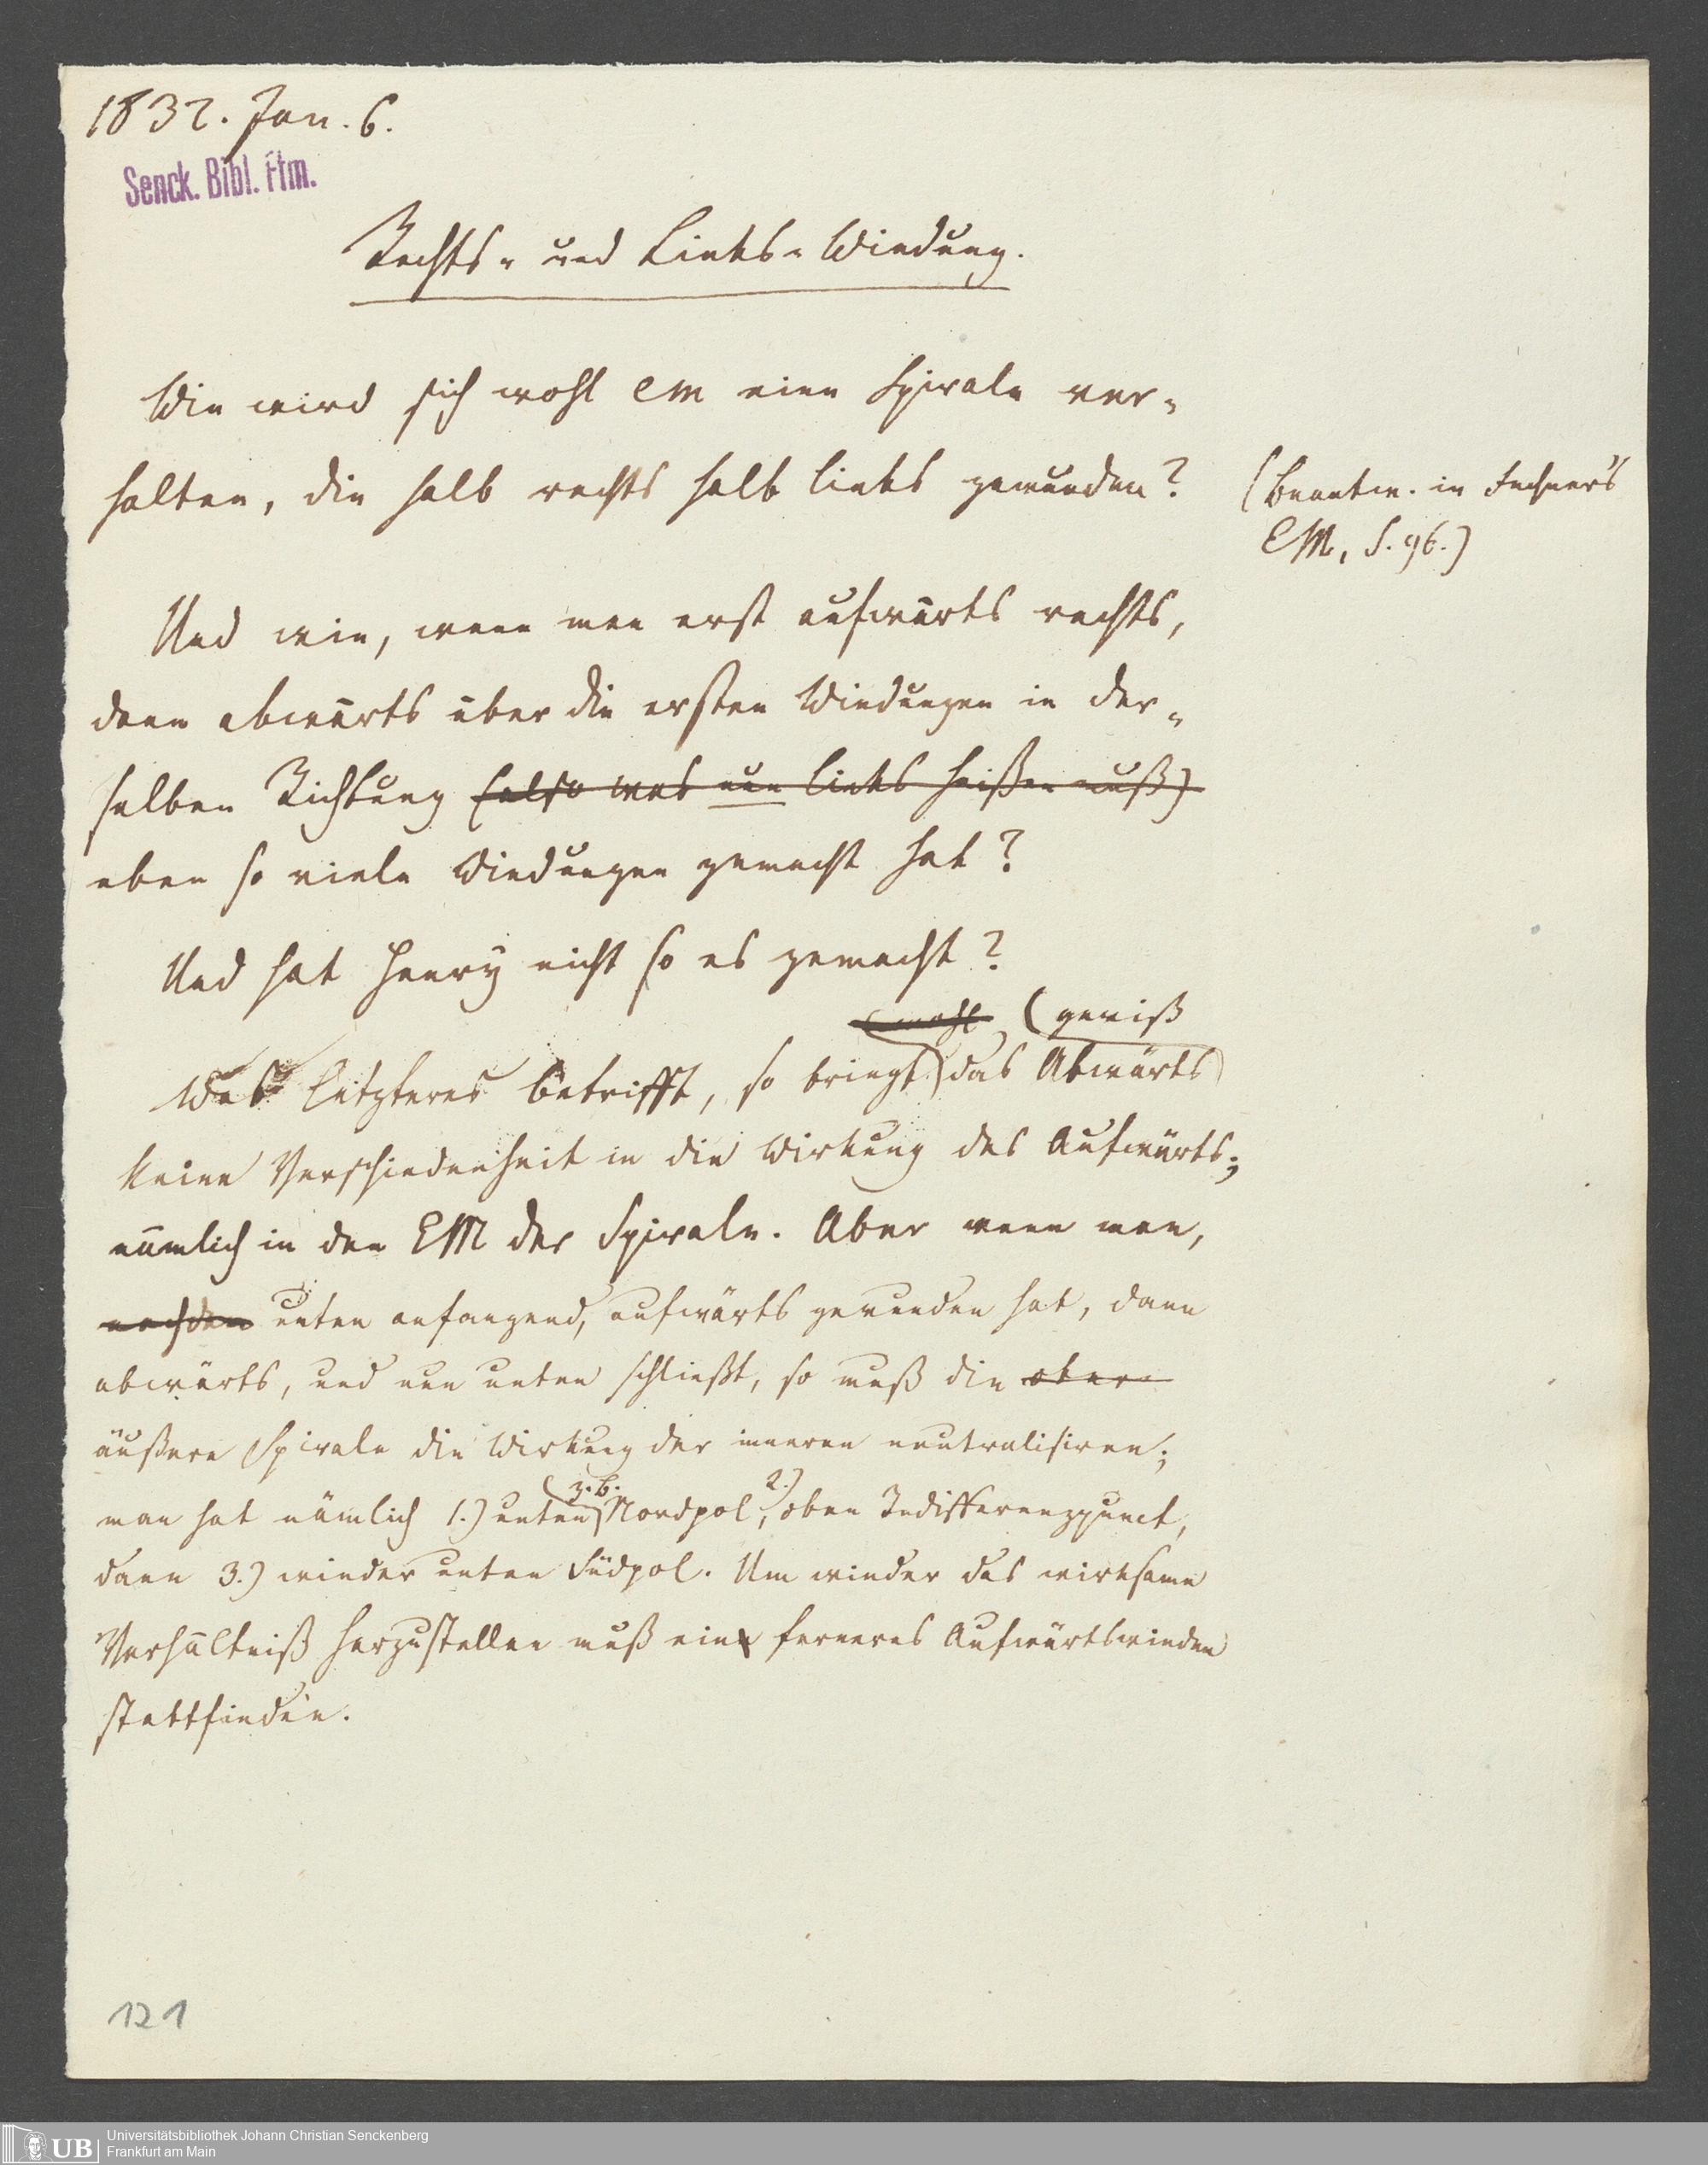 1832. Jan. 6.
Senck. Bibl. Ffm.
Rechts- und Links-Windung.
Wie wird sich wohl em eine Spirale ver-
halten, die halb rechts halb links gewunden?
(Beantw. in Fechner's
EM, S. 96.)
Und wie, wenn man erst aufwärts rechts,
dann abwärts über die ersten Windungen in der-
selben Richtung (also was nun links heißen muß)
eben so viele Windungen gemacht hat?
Und hat Henry nicht so es gemacht?
(wohl (gewiß
Was letzteres betrifft, so bringt das Abwärts
keine Verschiedenheit in die Wirkung des Aufwärts;
nämlich in den EM der Spirale. Aber wenn man,
nachdem unten anfangend, aufwärts gewunden hat, dann
abwärts, und nun unten schließt, so muß die obere
äußere Spirale die Wirkung der inneren neutralisiren;
man hat nämlich 1.) unten (z. B. Nordpol, 2.) oben Indifferenzpunct,
dann 3.) wieder unten Südpol. Um wieder das wirksame
Verhältniß herzustellen muß ein ferneres Aufwärtswinden
stattfinden.
121
UB Universitätsbibliothek Johann Christian Senckenberg
Frankfurt am Main